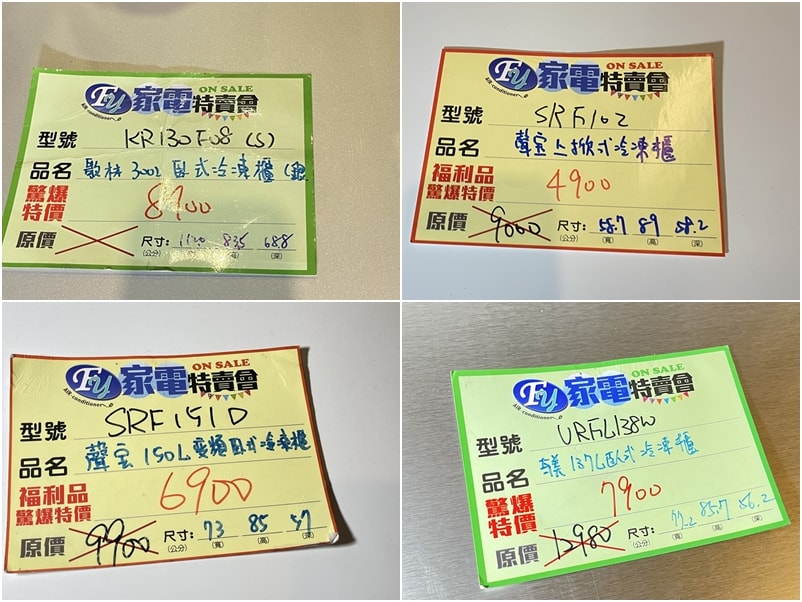 FU 家電特賣會 ON SALE
Air conditioner
型號 KR130F08 (S)
品名 歌林 300L 臥式冷凍櫃 (銀
驚爆特價 8900
原價 尺寸:(公分) 1120(寬) 835(高) 688(深)
FU 家電特賣會 ON SALE
Air conditioner
型號 SRF102
品名 聲宝上掀式冷凍櫃
福利品驚爆特價 4900
原價 9000 尺寸:(公分) 58.7(寬) 89(高) 58.2(深)
FU 家電特賣會 ON SALE
Air conditioner
型號 SRF151D
品名 聲宝 150L變頻臥式冷凍櫃
福利品驚爆特價 6900
原價 9900 尺寸:(公分) 73(寬) 85(高) 57(深)
FU 家電特賣會 ON SALE
Air conditioner
型號 URFL138W
品名 137L臥式冷凍櫃
驚爆特價 7900
原價 12980 尺寸:(公分) 77.2(寬) 85.7(高) 56.2(深)